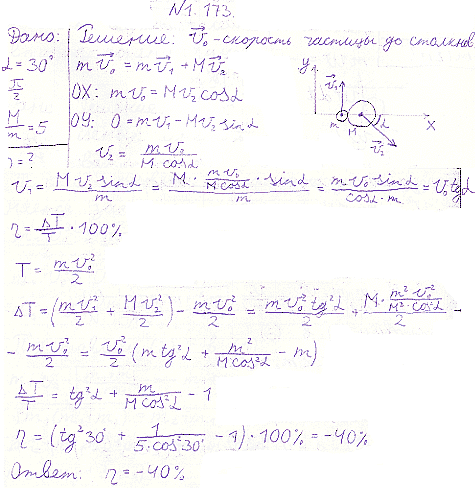 N1.173.
Дано: Решение: v⃗₀ - скорость частицы до столкнов
α = 30° mv⃗₀ = mv⃗₁ + Mv⃗₂
π/2 OX: mv₀ = Mv₂cosα
M/m = 5 OY: 0 = mv₁ - Mv₂ sinα
η = ? v₂ = mv₀/(M cosα)
y v⃗₁ m M α v⃗₂ x
v₁ = Mv₂ sinα/m = (M · mv₀/(M cosα) · sinα)/m = mv₀ sinα/(cosα · m) = v₀tgα
η = ΔT/T · 100%
T = mv₀²/2
ΔT = (mv₁²/2 + Mv₂²/2) - mv₀²/2 = mv₀² tg²α/2 + (M · m²v₀²/(M² · cos²α))/2 -
- mv₀²/2 = v₀²/2 (m tg²α + m²/(M cos²α) - m)
ΔT/T = tg²α + m/(M cos²α) - 1
η = (tg²30° + 1/(5·cos²30°) - 1) · 100% = -40%
Ответ: η = -40%